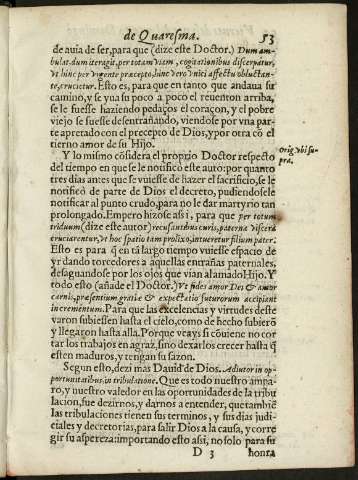 de Quaresma. 53
de auia de ser, para que (dize este Doctor.) Dum am-
bulat. dum iter agit, per totam viam, cogitationibus discerpatur,
vt hinc per vrgente præcepto, hinc vero vnici affectu obluctan-
te, crucietur. Esto es, para que en tanto que andaua su
camino, y se yua su poco a poco el reuenton arriba,
se le fuesse haziendo pedaços el coraçon, y el pobre
viejo se fuesse desentrañando, viendose por vna par-
te apretado con el precepto de Dios, y por otra cō el
tierno amor de su Hijo.
Y lo mismo cōsidera el proprio Doctor respecto
del tiempo en que se le notificó este auto: por quanto
tres dias antes que se vuiesse de hazer el sacrificio, se le
notificó de parte de Dios el decreto, pudiendosele
notificar al punto crudo, para no le dar martyrio tan
prolongado. Empero hizose assi, para que per totum
triduum (dize este autor) recursantibus curis, paterna viscera
cruciarentur, vt hoc spatio tam prolixo, intueretur filium pater.
Esto es para q̄ en tā largo tiempo vuiesse espacio de
yr dando torcedores a aquellas entrañas paternales,
desaguandose por los ojos que vian al amado Hijo. Y
todo esto (añade el Doctor.) Vt fides amor Dei & amor
carnis, præsentium gratia & expectatio futurorum accipiant
incrementum. Para que las excelencias y virtudes deste
varon subiessen hasta el cielo, como de hecho subierō
y llegaron hasta allà. Porque veays si cōuiene no cor-
tar los trabajos en agraz, sino dexarlos crecer hasta q̄
esten maduros, y tengan su sazon.
Segun esto, dezi mas Dauid de Dios. Adiutor in op-
portunitatibus, in tribulatione. Que es todo nuestro ampa-
ro, y nuestro valedor en las oportunidades de la tribu
lacion, fue dezirnos, y darnos a entender, que tambiē
las tribulaciones tienen sus terminos, y sus dias judi-
ciales y decretorias, para salir Dios a la causa, y corre
gir su aspereza: importando esto assi, no solo para su
D 3 honra
Orig. vbi su-
pra.